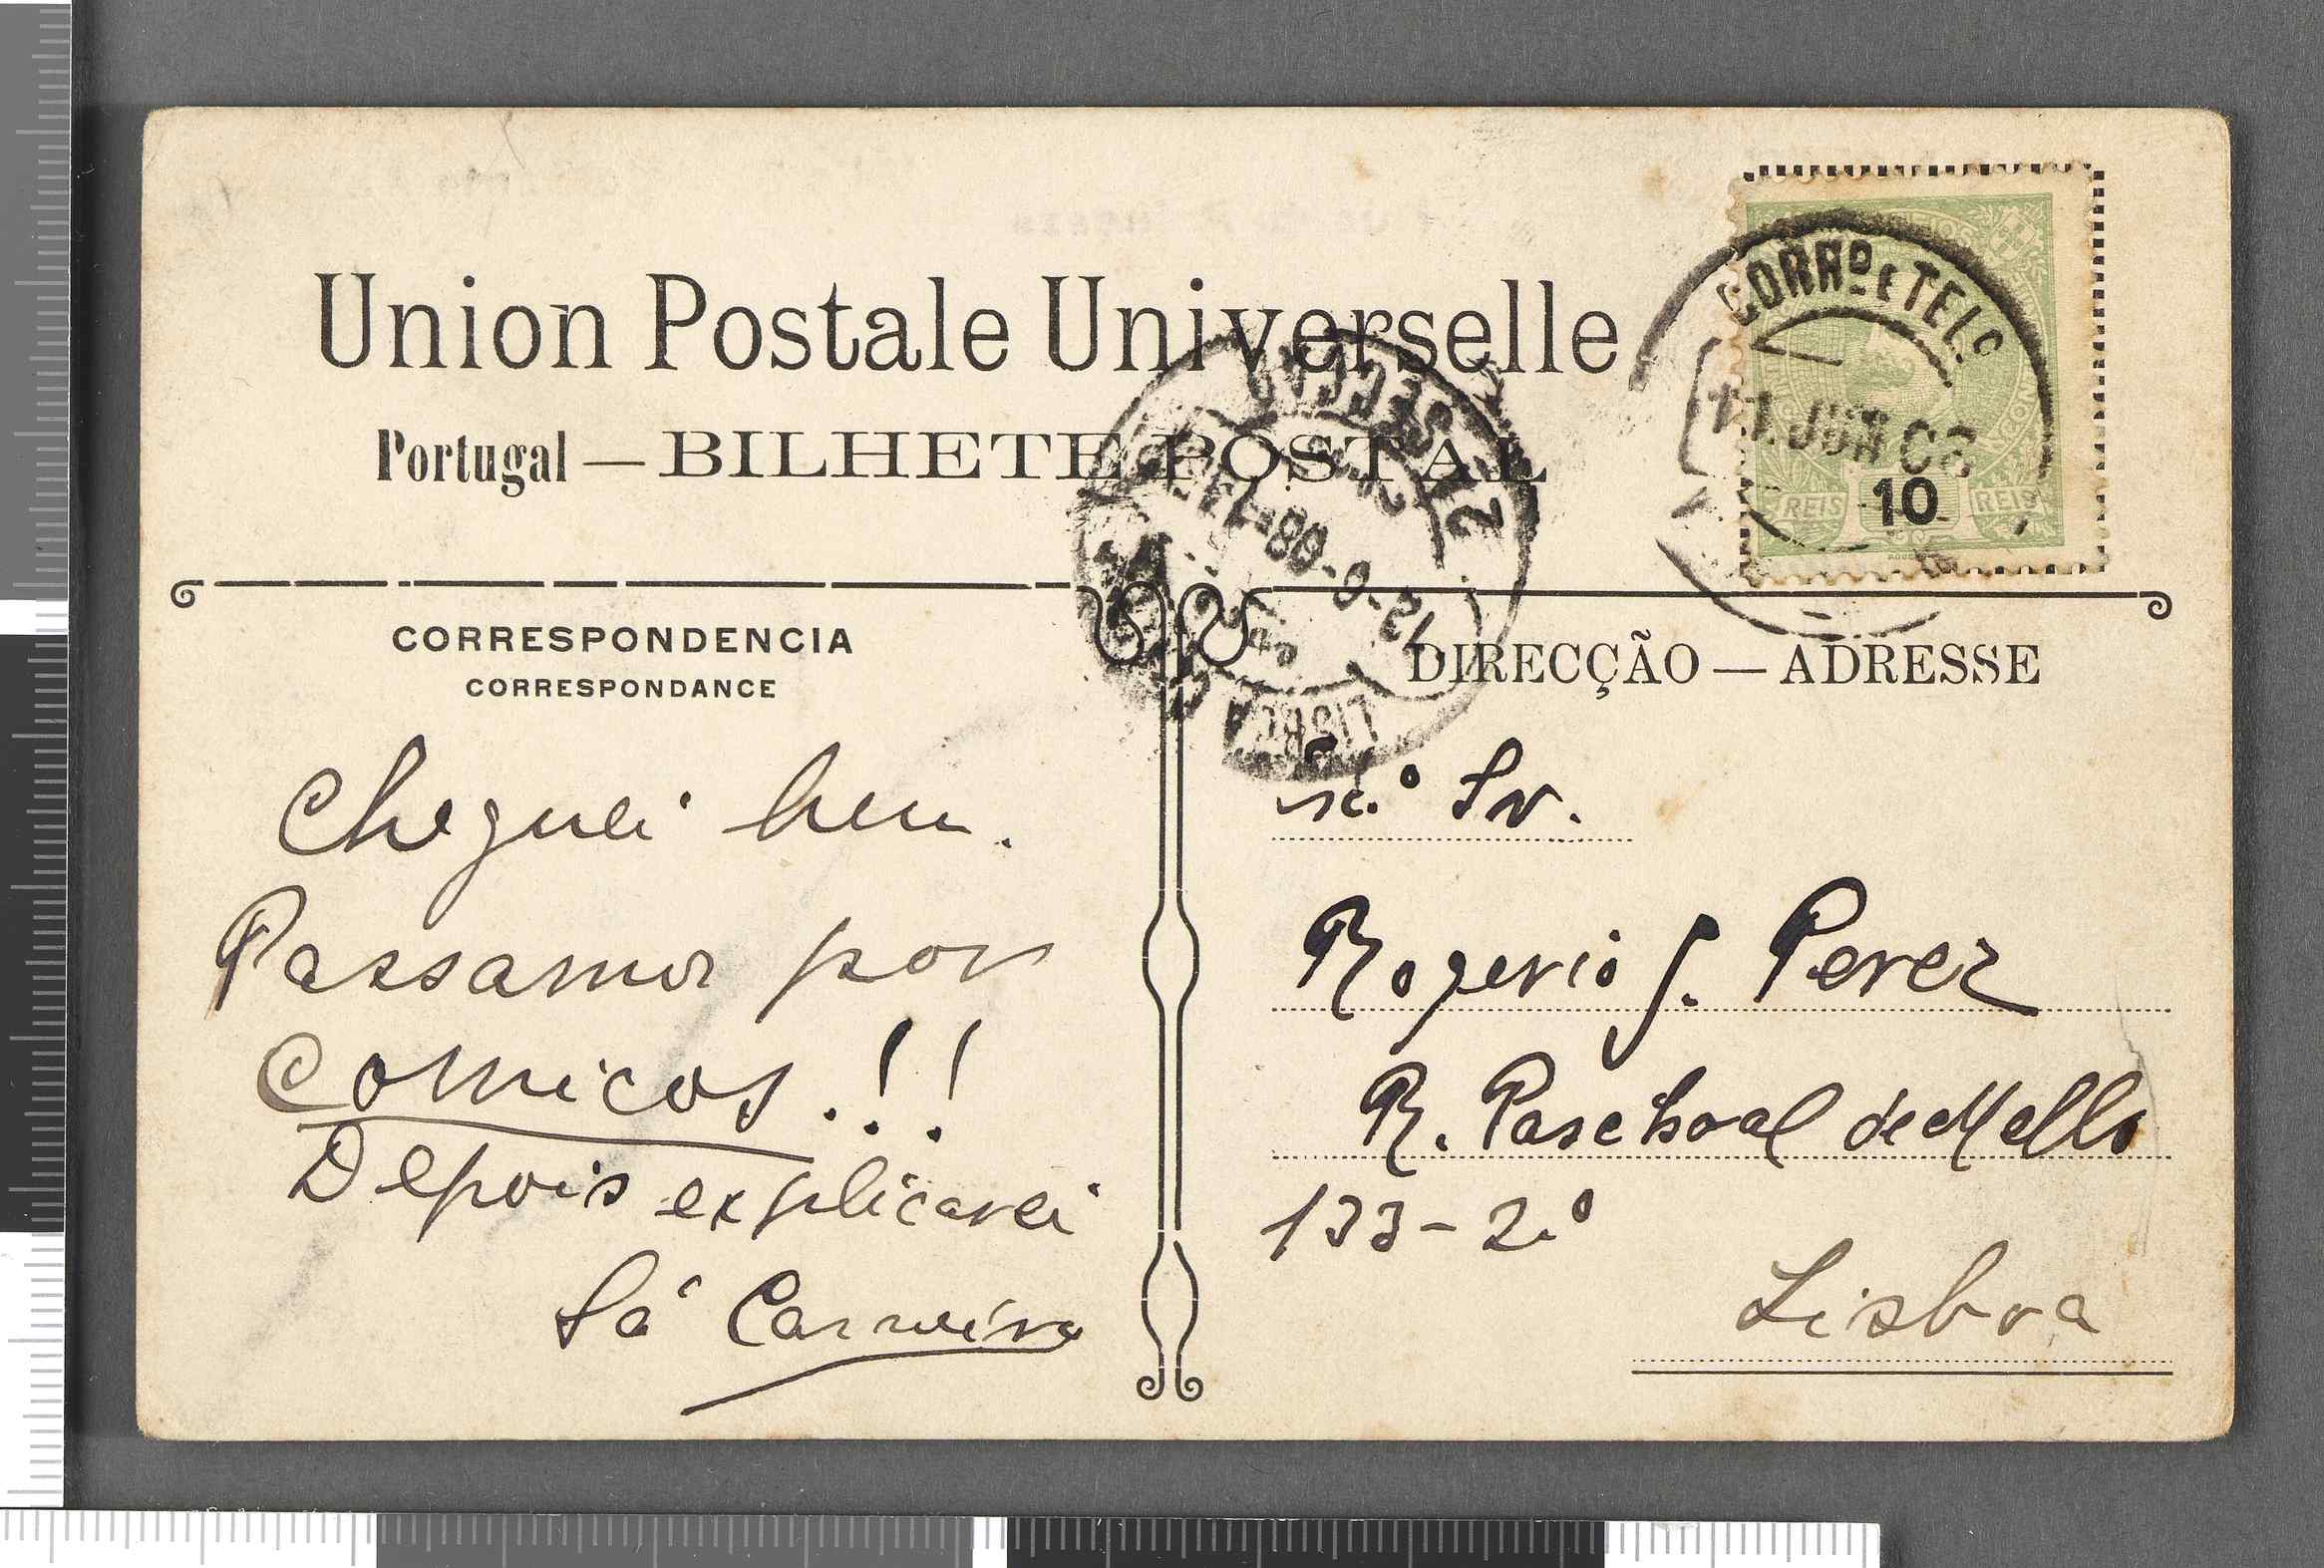 Union Postale Universelle
Portugal — BILHETE POSTAL
CORRº E TELº
11 JUN 08
REIS 10 REIS
2ª SECÇÃO
12-6-08
LISBOA
CORRESPONDENCIA
CORRESPONDANCE
Cheguei bem.
Passamos por
comicos.!!
Depois explicarei
Sá Carneiro
DIRECÇÃO — ADRESSE
Sr.
Rogerio G. Perez
R. Paschoal de Mello
133-2.º
Lisboa